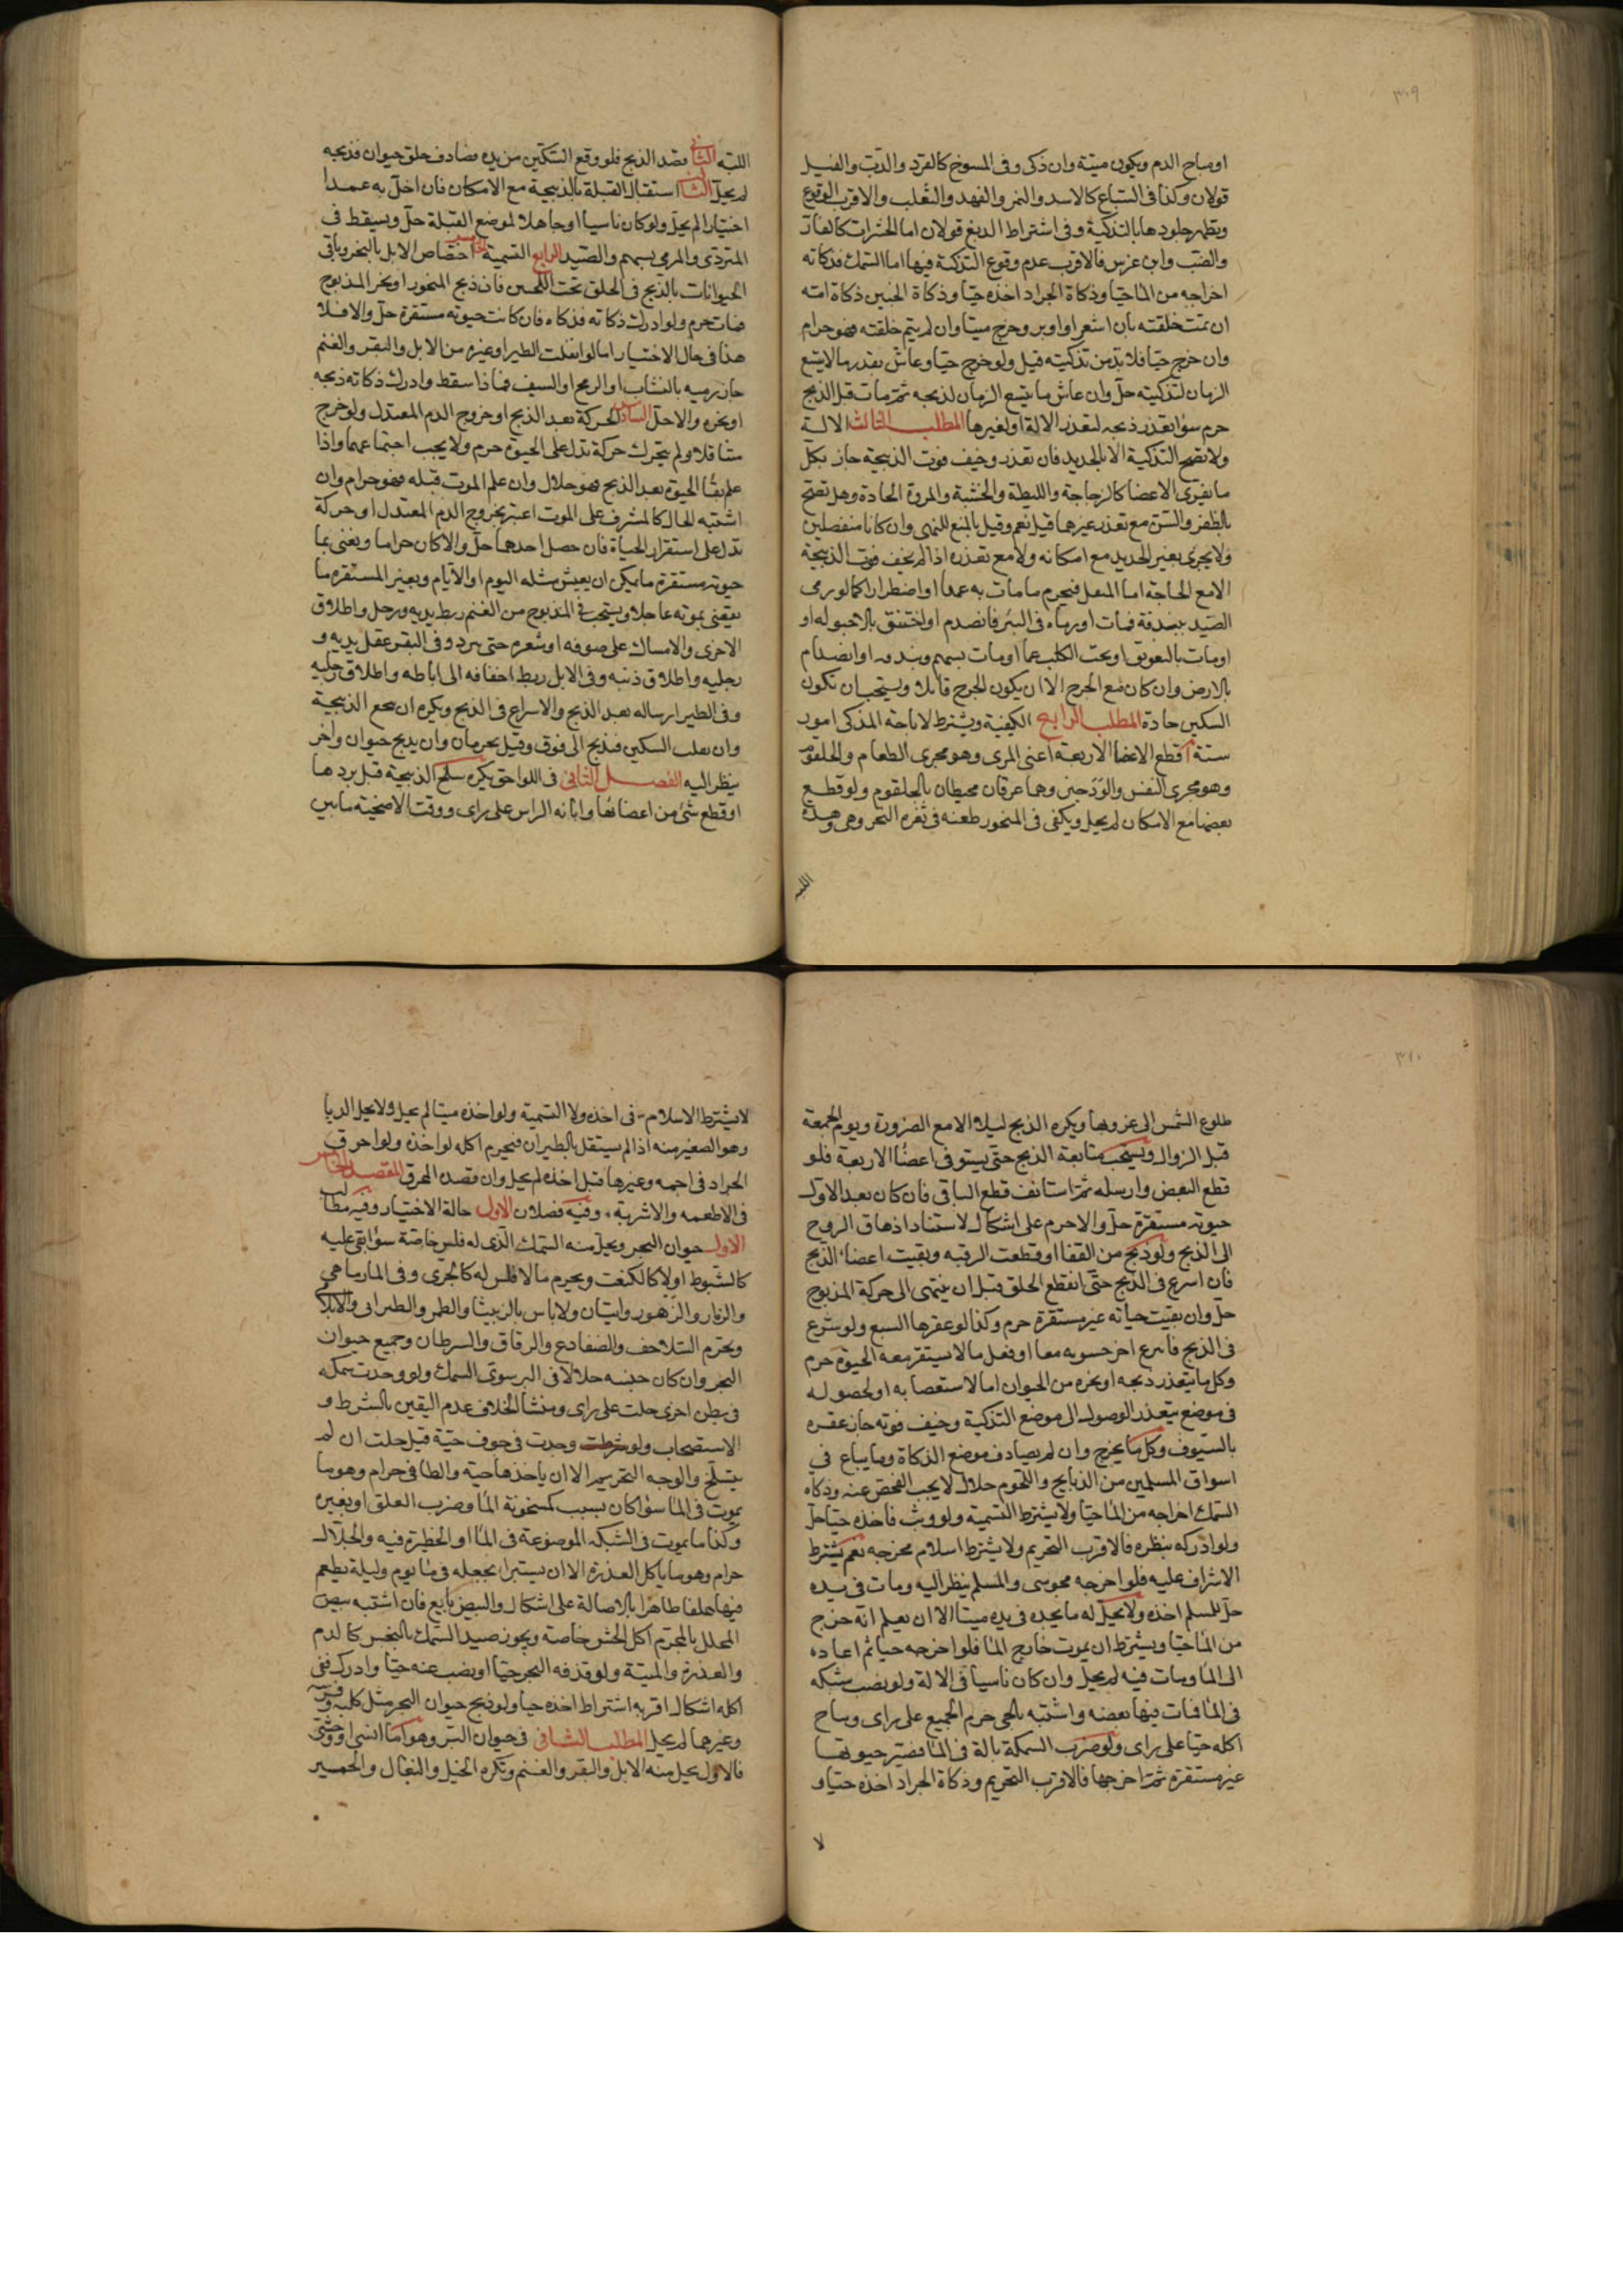 ٣٠٩
او مباح الدم ويكون ميتة وان ذكى وفى المسوخ كالقرد والدب والفيل
قولان وكذا فى السباع كالاسد والنمر والفهد والثعلب والاقرب الوقوع
ويطهر جلودها بالتذكية وفى اشتراط الدبغ قولان اما الحشرات كالفار
والضب وابن عرس فالاقرب عدم وقوع التذكية فيها اما السمك فذكاته
اخراجه من الما حيا وذكاة الجراد اخذه حيا وذكاة الجنين ذكاة امه
ان تمت خلقته بان اشعر او اوبر وخرج ميتا وان لم يتم خلقته فهو حرام
وان خرج حيا فلا بد من تذكيته قيل ولو خرج حيا وعاش بقدر ما لا يتسع
الزمان لتذكيته حل وان عاش ما يتسع الزمان لذبحه ثم مات قبل الذبح
حرم سوا تعذر ذبحه لتعذر الالة او لغيرها المطلب الثالث الالة
ولا تصح التذكية الا بالحديد فان تعذر وخيف فوت الذبيحة جاز بكل
ما يفرى الاعضا كالزجاجة والليطة والخشبة والمروة الحادة وهل تصح
بالظفر والسن مع تعذر غيرهما قيل نعم وقيل بالمنع للنهى وان كانا منفصلين
ولا يجزى بغير الحديد مع امكانه ولا مع تعذره اذا لم يخف فوت الذبيحة
الا مع الحاجة اما المنفعل فيحرم ما مات به عمدا او اضطرارا كما لو رمى
الصيد ببندقة فمات او رماه فى البئر فانصدم او اختنق بالاحبوله او
او مات بالتعويق او تحت الكلب غما او مات بسهم وبندقه او انصدام
بالارض وان كان مع الجرح الا ان يكون الجرح قاتلا ويستحب ان تكون
السكين حادة المطلب الرابع الكيفية ويشترط لاباحة المذكى امور
ستة ا قطع الاعضا الاربعة اعنى المرى وهو مجرى الطعام والحلقوم
وهو مجرى النفس والودجين وهما عرقان محيطان بالحلقوم ولو قطع
بعضها مع الامكان لم يحل ويكفى فى المنحور طعنه فى ثغرة النحر وهى وهدة
اللبه
اللبه الثانى قصد الذبح فلو وقع السكين من يده فصادف حلق حيوان فذبحه
لم يحل الثالث استقبال القبلة بالذبيحة مع الامكان فان اخل به عمدا
اختيارا لم يحل ولو كان ناسيا او جاهلا لموضع القبلة حل ويسقط فى
المتردى والمرمى بسهم والصيد الرابع التسمية الخامس اختصاص الابل بالنحر وباقى
الحيوانات بالذبح فى الحلق تحت اللحيين فان ذبح المنحور او نحر المذبوح
فمات حرم ولو ادرك ذكاته فذكاه فان كانت حيوته مستقرة حل والا فلا
هذا فى حال الاختيار اما لو انفلت الطير او غيره من الابل والبقر والغنم
جاز رميه بالنشاب او الرمح او السيف فاذا سقط وادرك ذكاته ذبحه
او نحره والا حل السادس الحركة بعد الذبح او خروج الدم المعتدل ولو خرج
متثاقلا ولم يتحرك حركة تدل على الحيوة حرم ولا يجب اجتماعهما واذا
علم بقا الحيوة بعد الذبح فهو حلال وان علم الموت قبله فهو حرام وان
اشتبه الحال كالمشرف على الموت اعتبر بخروج الدم المعتدل او حركة
تدل على استقرار الحياة فان حصل احدهما حل والا كان حراما ونعنى بما
حيوته مستقرة ما يمكن ان يعيش مثله اليوم او الايام وبغير المستقرة ما
يقضى بموته عاجلا ويستحب فى المذبوح من الغنم ربط يديه ورجل واطلاق
الاخرى والامساك على صوفه او شعره حتى يبرد وفى البقر عقل يديه و
رجليه واطلاق ذنبه وفى الابل ربط اخفافه الى اباطه واطلاق رجليه
وفى الطير ارساله بعد الذبح والاسراع فى الذبح ويكره ان ينخع الذبيحة
وان يقلب السكين فيذبح الى فوق وقيل يحرمان وان يذبح حيوان واخر
ينظر اليه الفصل الثانى فى اللواحق يكره سلخ الذبيحة قبل بردها
او قطع شئ من اعضائها وابانه الراس على راى ووقت الاضحية ما بين
٣١٠
طلوع الشمس الى غروبها ويكره الذبح ليلا الا مع الضرورة ويوم الجمعة
قبل الزوال ويستحب متابعة الذبح حتى يستوفى اعضا الاربعة فلو
قطع البعض وارسله ثم استانف قطع الباقى فان كان بعد الاول
حيوته مستقرة حل والا حرم على اشكال لاستناد اذهاق الروح
الى الذبح ولو ذبح من القفا او قطعت الرقبه وبقيت اعضا الذبح
فان اسرع فى الذبح حتى انقطع الحلق قبل ان ينتهى الى حركة المذبوح
حل وان بقيت حياته غير مستقرة حرم وكذا لو عقرها السبع ولو شرع
فى الذبح فانتزع اخر حشوبه معا او فعل ما لا يستقر معه الحيوة حرم
وكل ما يتعذر ذبحه او نحره من الحيوان اما لاستعصا به او لحصوله
فى موضع يتعذر الوصول الى موضع التذكية وخيف فوته جاز عقره
بالسيوف وكل ما يجرح وان لم يصادف موضع الذكاة وما يباع فى
اسواق المسلمين من الذبايح واللحوم حلال لا يجب الفحص عنه وذكاه
السمك اخراجه من الما حيا ولا يشترط التسمية ولو وثب فاخذه حيا حل
ولو ادركه بنظره فالاقرب التحريم ولا يشترط اسلام مخرجه نعم يشترط
الاشراف عليه فلو اخرجه مجوسى والمسلم ينظر اليه ومات فى يده
حل للمسلم اخذه ولا يحل له ما يجده فى يده ميتا الا ان يعلم انه خرج
من الما حيا ويشترط ان يموت خارج الما فلو اخرجه حيا ثم اعاده
الى الما ومات فيه لم يحل وان كان ناسيا فى الالة ولو نصب شبكه
فى الما فمات فيها بعضه واشتبه بالحى حرم الجميع على راى ويباح
اكله حيا على راى ولو ضرب السمكة بالة فى الما فصير حيوتها
غير مستقرة ثم اخرجها فالاقرب التحريم وذكاة الجراد اخذه حيا و
لا
لا يشترط الاسلام فى اخذه ولا التسمية ولو اخذه ميتا لم يحل ولا يحل الدبا
وهو الصغير منه اذا لم يستقل بالطيران فيحرم اكله لو اخذه ولو احرق
الجراد فى اجمه وغيرها قبل اخذه لم يحل وان قصده المحرق المقصد الخامس
فى الاطعمه والاشربة وفيه فصلان الاول حالة الاختيار وفيه مطالب
الاول حيوان البحر ويحل منه السمك الذى له فلس خاصة سوا بقى عليه
كالشبوط اولا كالكنعت ويحرم ما لا فلس له كالجرى وفى المارماهى
والزمار والزهور وايتان ولا باس بالربيثا والطمر والطبرانى والابلا
ويحرم السلاحف والضفادع والرقاق والسرطان وجميع حيوان
البحر وان كان جنسه حلالا فى البر سوى السمك ولو وجدت سمكه
فى بطن اخرى حلت على راى ومنشا الخلاف عدم اليقين بالشرط و
الاستصحاب ولو وجدت فى جوف حية قيل حلت ان لم
يتسلخ والوجه التحريم الا ان ياخذها حية والطافى حرام وهو ما
يموت فى الما سوا كان بسبب كسخونة الما وضرب العلق او بغيره
وكذا ما يموت فى الشبكه الموضوعة فى الما او الحظيرة فيه والجلال
حرام وهو ما ياكل العذرة الا ان يستبرا بجعله فى ما يوم وليلة يطعم
فيها علفا طاهرا بالاصالة على اشكال والبيض تابع فان اشتبه بيض
المحلل بالمحرم اكل الخشن خاصة ويجوز صيد السمك بالنجس كالدم
والعذرة والميتة ولو قذفه البحر حيا او نضب عنه حيا وادرك ففى
اكله اشكال اقربه اشتراط اخذه حيا ولو ذبح حيوان البحر مثل كلبه وفرسه
وغيرهما لم يحل المطلب الثانى فى حيوان البر وهو اما انسى او وحشى
فالاول يحل منه الابل والبقر والغنم ويكره الخيل والبغال والحمير